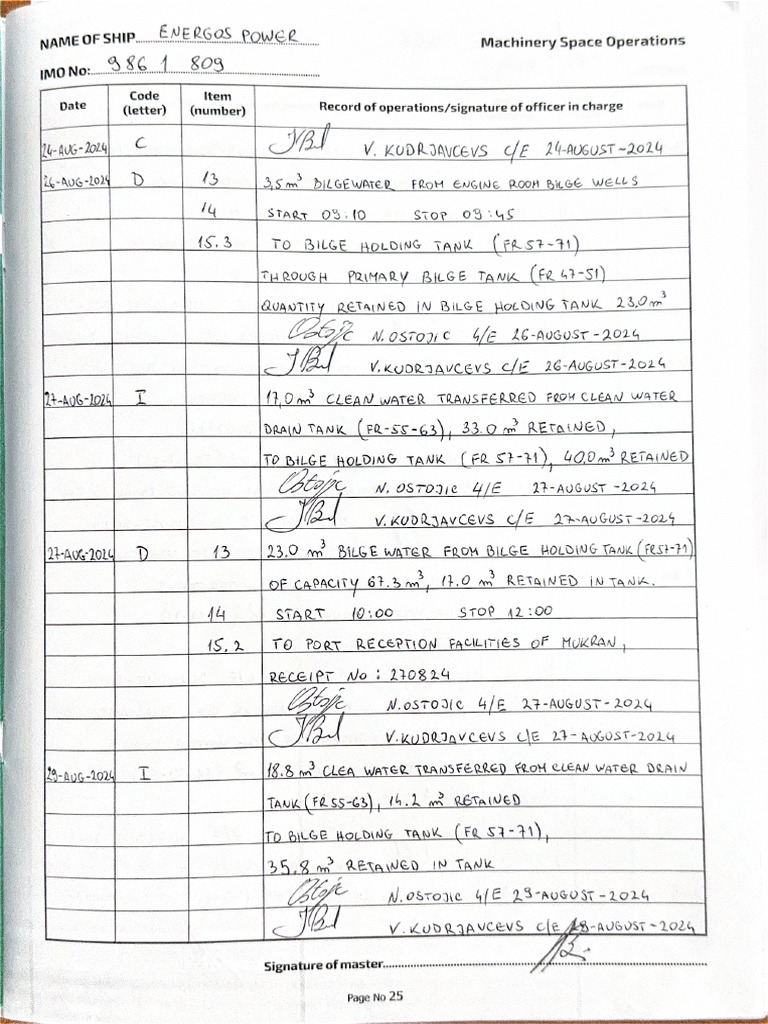 NAME OF SHIP ENERGOS POWER
Machinery Space Operations
IMO No: 9861 809
Date Code (letter) Item (number) Record of operations/signature of officer in charge
24-AUG-2024 C V. KUDRJAVCEVS C/E 24-AUGUST-2024
26-AUG-2024 D 13 3,5 m³ BILGEWATER FROM ENGINE ROOM BILGE WELLS
14 START 09:10 STOP 09:45
15.3 TO BILGE HOLDING TANK (FR 57-71)
THROUGH PRIMARY BILGE TANK (FR 47-51)
QUANTITY RETAINED IN BILGE HOLDING TANK 23,0 m³
N. OSTOJIC 4/E 26-AUGUST-2024
V. KUDRJAVCEVS C/E 26-AUGUST-2024
27-AUG-2024 I 17,0 m³ CLEAN WATER TRANSFERRED FROM CLEAN WATER
DRAIN TANK (FR-55-63), 33.0 m³ RETAINED,
TO BILGE HOLDING TANK (FR 57-71), 40.0 m³ RETAINED
N. OSTOJIC 4/E 27-AUGUST-2024
V. KUDRJAVCEVS C/E 27-AUGUST-2024
27-AUG-2024 D 13 23.0 m³ BILGE WATER FROM BILGE HOLDING TANK (FR57-71)
OF CAPACITY 67.3 m³, 17.0 m³ RETAINED IN TANK.
14 START 10:00 STOP 12:00
15.2 TO PORT RECEPTION FACILITIES OF MUKRAN,
RECEIPT No : 270824
N. OSTOJIC 4/E 27-AUGUST-2024
V. KUDRJAVCEVS C/E 27-AUGUST-2024
29-AUG-2024 I 18.8 m³ CLEA WATER TRANSFERRED FROM CLEAN WATER DRAIN
TANK (FR 55-63), 14.2 m³ RETAINED
TO BILGE HOLDING TANK (FR 57-71),
35,8 m³ RETAINED IN TANK
N. OSTOJIC 4/E 29-AUGUST-2024
V. KUDRJAVCEVS C/E 29-AUGUST-2024
Signature of master
Page No 25